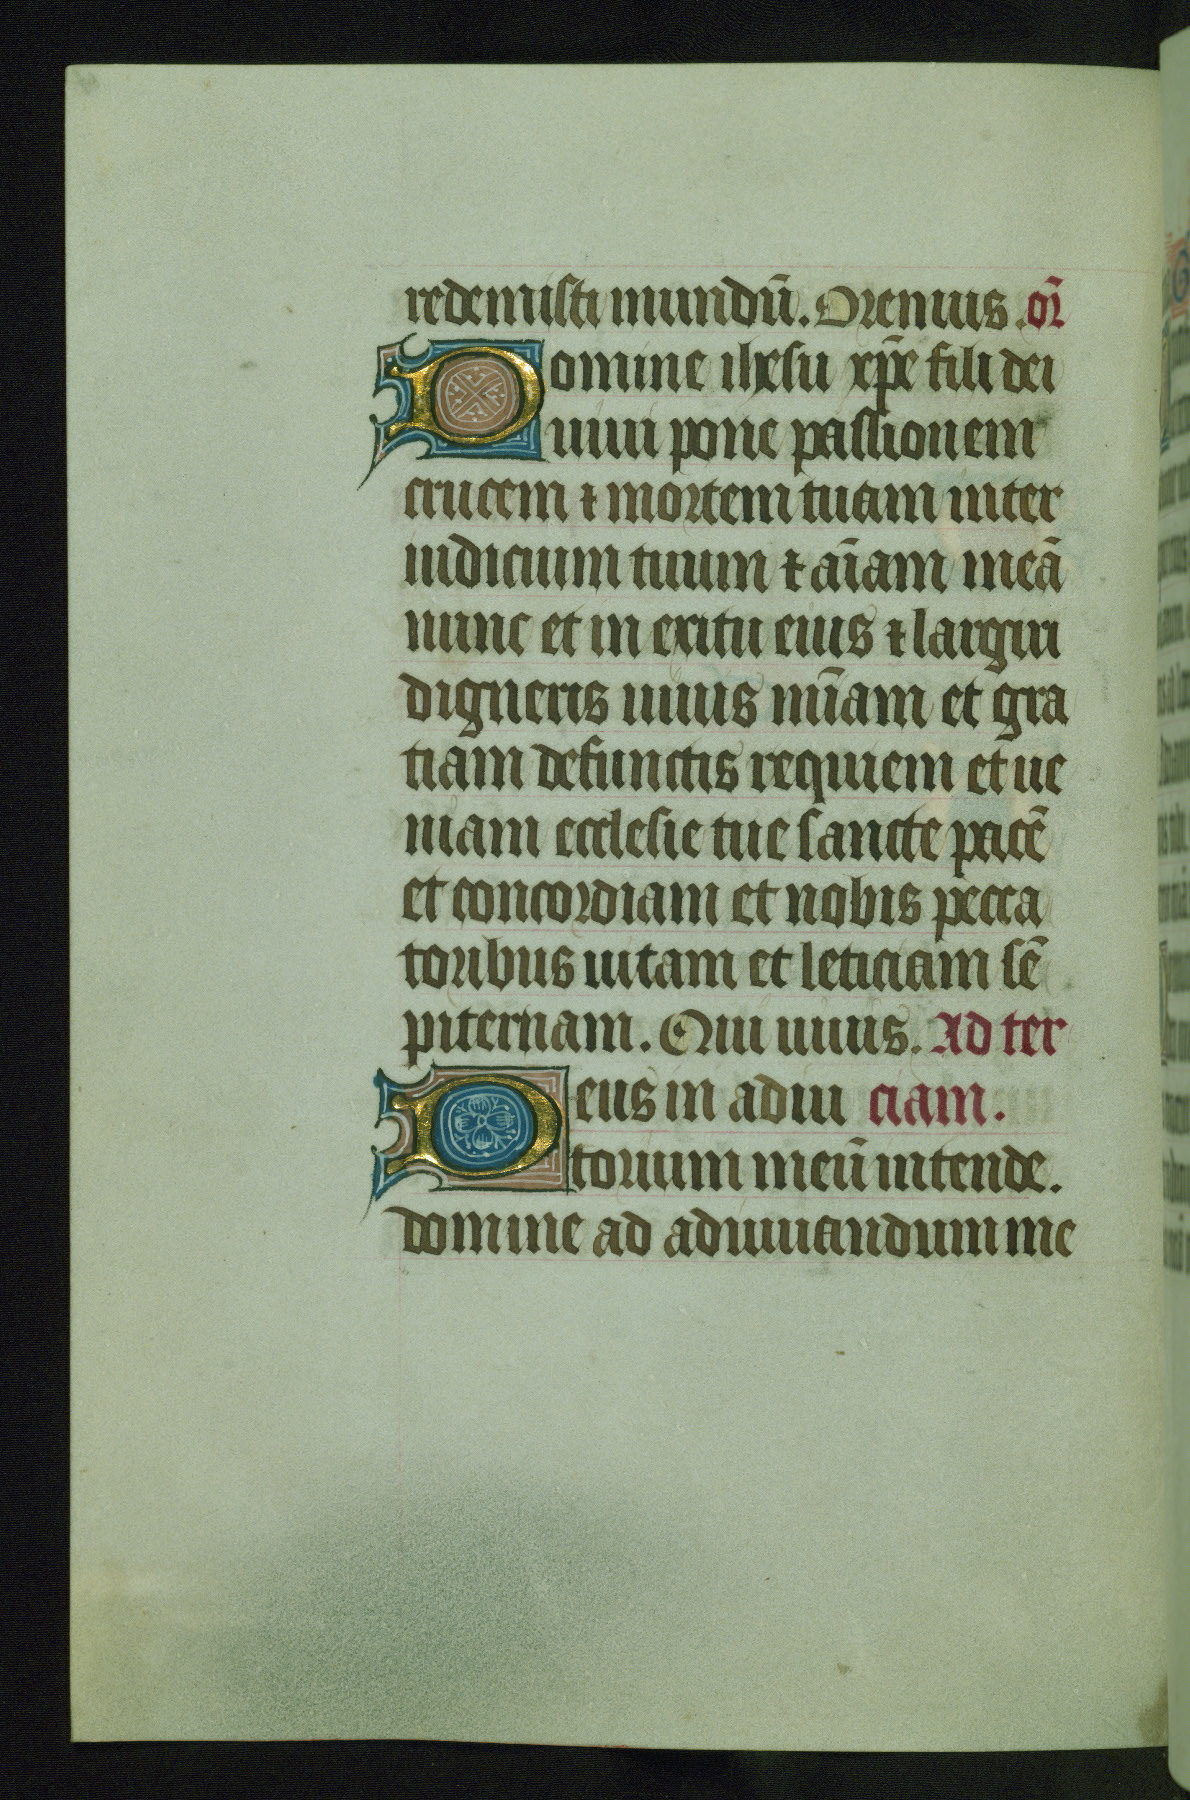 redemisti mundū. Oremus. or̄
Domine ihesu xp̄e fili dei
uiui pone passionem
crucem ⁊ mortem tuam inter
iudicium tuum ⁊ aīam meā
nunc et in exitu eius ⁊ largiri
digneris uiuis mīam et gra
tiam defunctis requiem et ue
niam ecclesie tue sancte pacē
et concordiam et nobis pecca
toribus uitam et leticiam sē
piternam. Qui uiuis. Ad ter
Deus in adiu ciam.
torium meū intende.
domine ad adiuuandum me